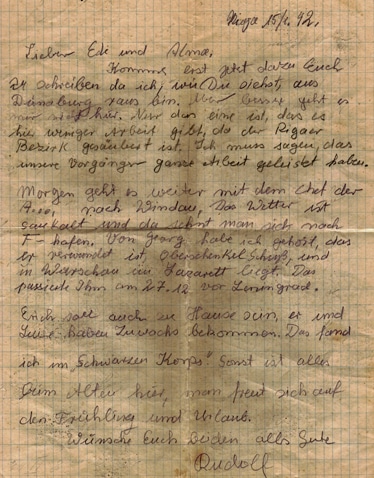 Riga 15/1. 42.
Lieber Ede und Alma,
Komme erst jetzt dazu Euch
zu schreiben da ich, wie Du siehst, aus
Dünaburg raus bin. besser geht es
mir hier. Nur das eine ist, das es
hier weniger Arbeit gibt, da der Rigaer
Bezirk gesäubert ist. Ich muss sagen, das
unsere Vorgänger ganze Arbeit geleistet haben.
Morgen geht es weiter mit dem Chef der
nach Windau, Das Wetter ist
saukalt und da sehnt man sich nach
F-hafen. Von Georg habe ich gehört, das
er verwundet ist, Oberschenkel Schuß, und
in Warschau im Lazarett liegt. Das
passierte Ihm am 27.12 vor Leningrad.
Erich soll auch zu Hause sein, er und
haben Zuwachs bekommen. Das fand
ich im Schwarzen Korps". Sonst ist alles
beim Alten hier, man freut sich auf
den Frühling und Urlaub.
Wünsche Euch beiden alles Gute
Rudolf